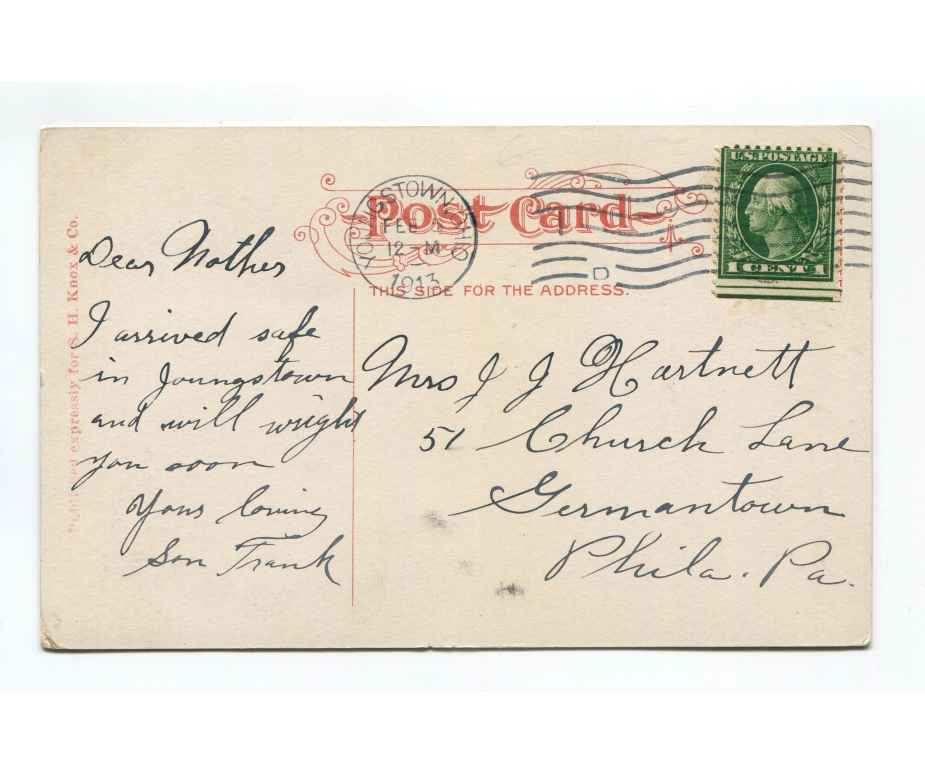 Post Card
THIS SIDE FOR THE ADDRESS.
YOUNGSTOWN, OHIO
FEB
12-M
1913
D
U.S. POSTAGE
1 CENT 1
expressly for S. H. Knox & Co.
Dear Mother
I arrived safe
in Youngstown
and will wright
you soon
Yours loving
Son Frank
Mrs J J Hartnett
51 Church Lane
Germantown
Phila. Pa.